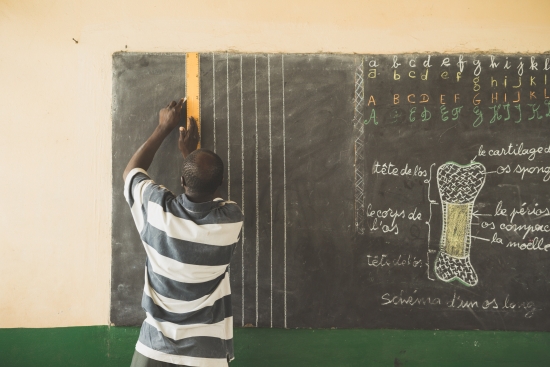 a b c d e f g h i j k
a b c d e f g h i j k
A B C D E F G H I J K
A B C D E F G H I J
le cartilage d
tête de l'os
os spong
le corps de l'os
le périos
os compac
la moëlle
tête de l'os
schéma d'un os long